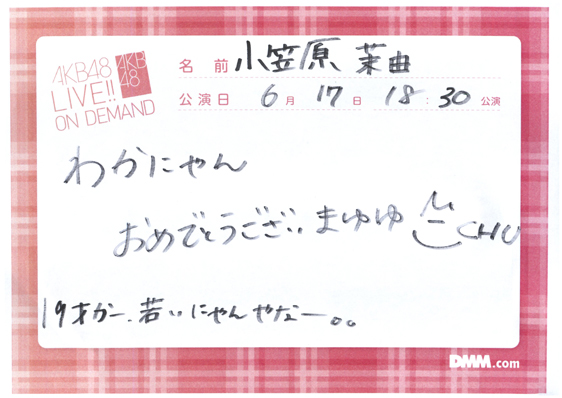 AKB48
LIVE!!
ON DEMAND
AKB
48
名前 小笠原 茉由
公演日 6月 17日 18:30 公演
わかにゃん
おめでとうござい まゆゆ CHU
19才かー、若いにゃんやなー。。
DMM.com